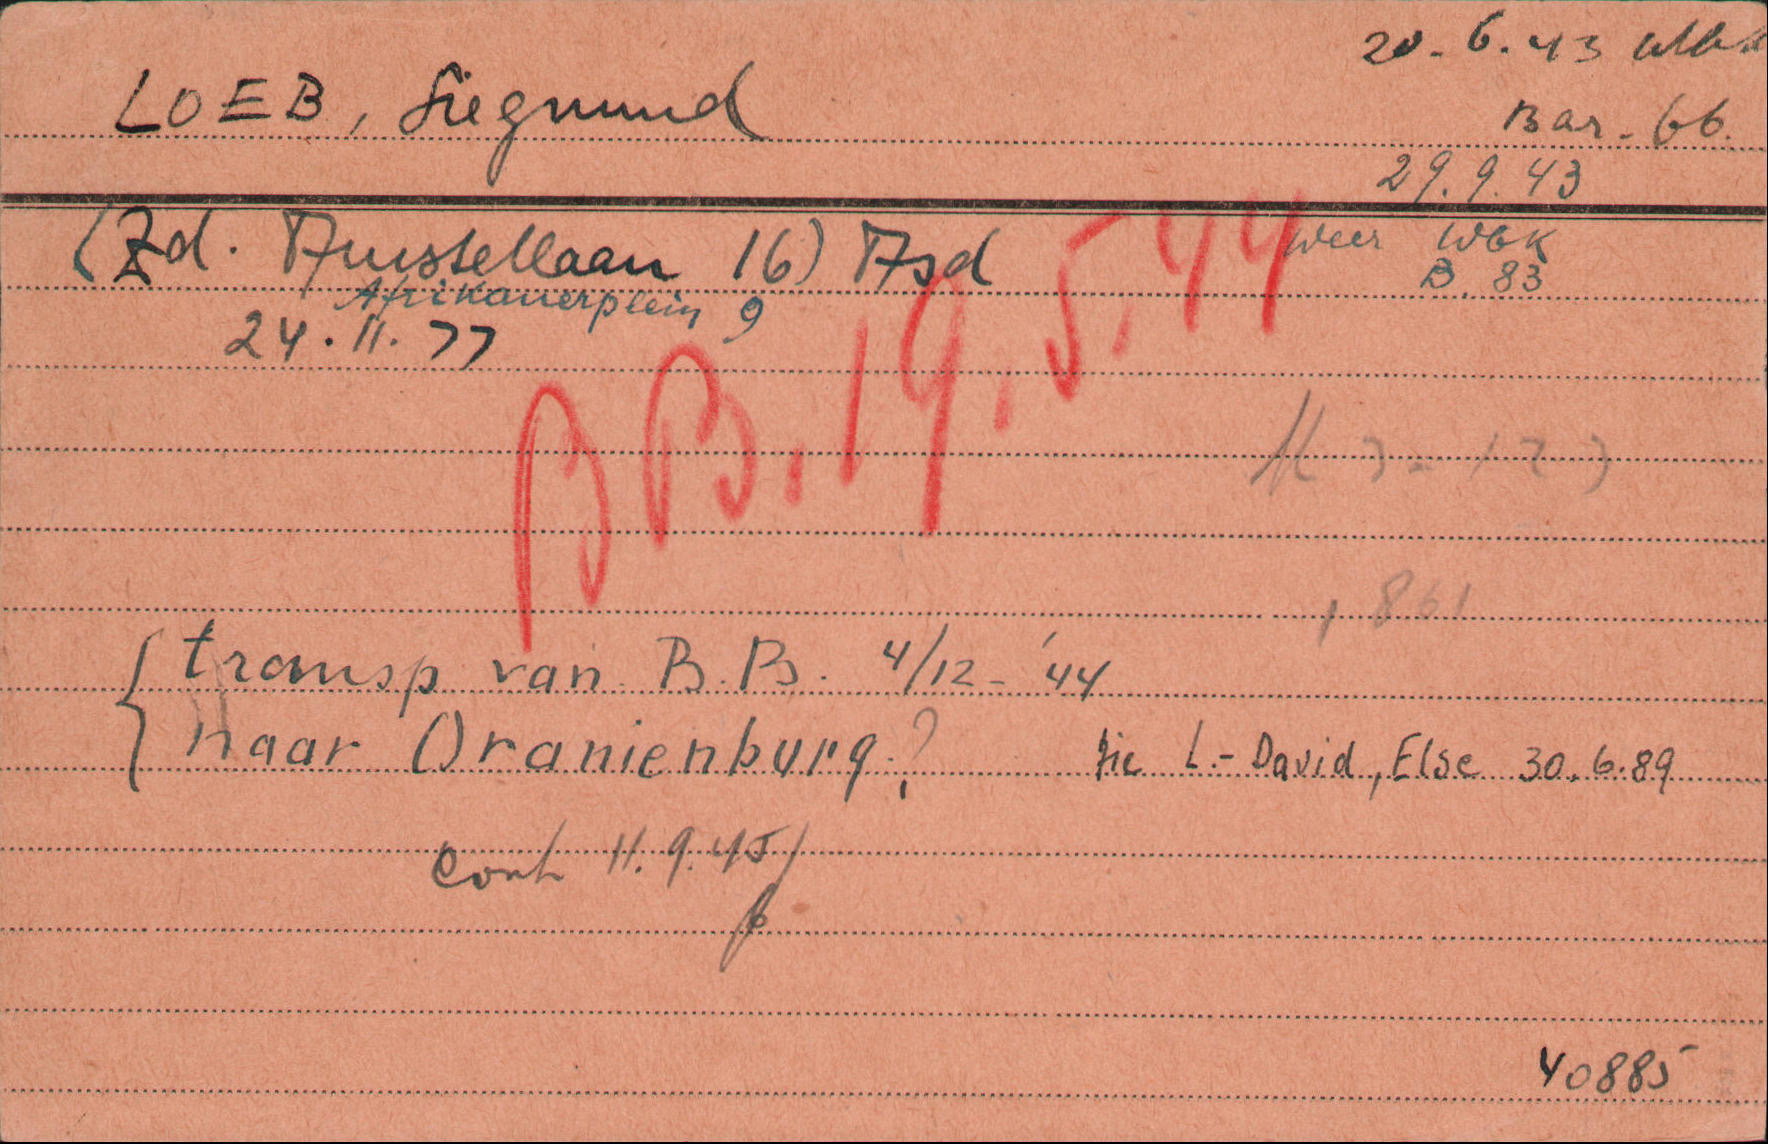 20-6.43 Wbk
LOEB, Siegmund
Bar-66.
29.9.43
(Zd. Amstellaan 16) Asd
weer Wbk
B. 83
Afrikanerplein 9
24.11.77
BB.19.5.44
1861
transp van B.B. 4/12-'44
naar Oranienburg?
zie L.-David, Else 30.6.89
Cont 11.9.45
40885